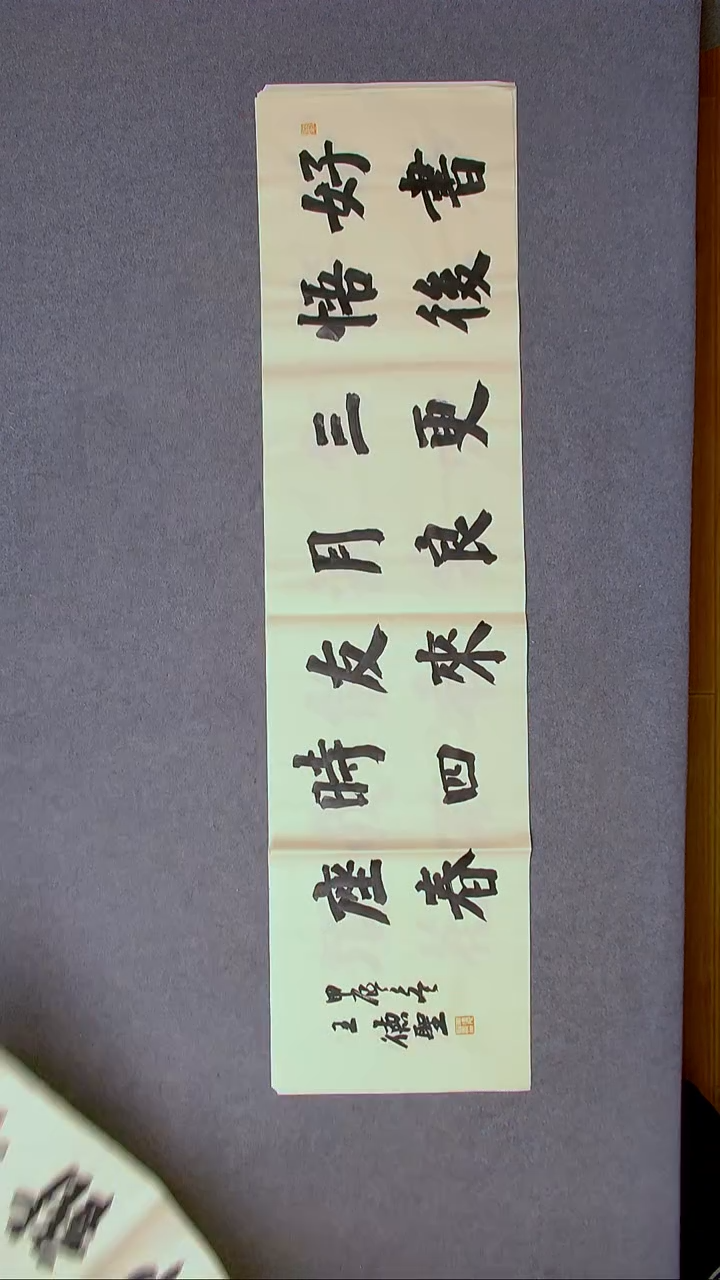 好書
悟後
三更
月良
友來
時四
座春
甲辰
王德聖